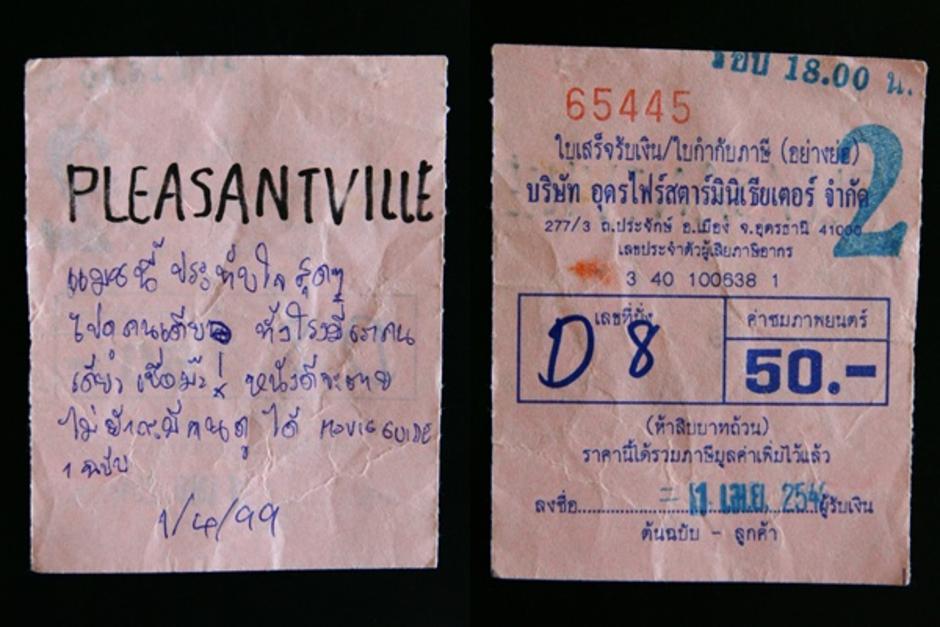 PLEASANTVILLE
แมนนี้ ประทับใจ สุดๆ
ไปดูคนเดียว ทั้งโรงมีเราคน
เดียว เชื่อมั๊ย! หนังดีจะตาย
ไม่ยักจะมีคนดู ได้ MOVIE GUIDE
1 ฉบับ
1/4/99
รอบ 18.00 น.
65445
2
ใบเสร็จรับเงิน/ใบกำกับภาษี (อย่างย่อ)
บริษัท อุดรไฟร์สตาร์มินิเธียเตอร์ จำกัด
277/3 ถ.ประจักษ์ อ.เมือง จ.อุดรธานี 41000
เลขประจำตัวผู้เสียภาษีอากร
3 40 100638 1
เลขที่นั่ง
D 8
ค่าชมภาพยนตร์
50.-
(ห้าสิบบาทถ้วน)
ราคานี้ได้รวมภาษีมูลค่าเพิ่มไว้แล้ว
ลงชื่อ..........= 1 เม.ย. 254..........ผู้รับเงิน
ต้นฉบับ - ลูกค้า